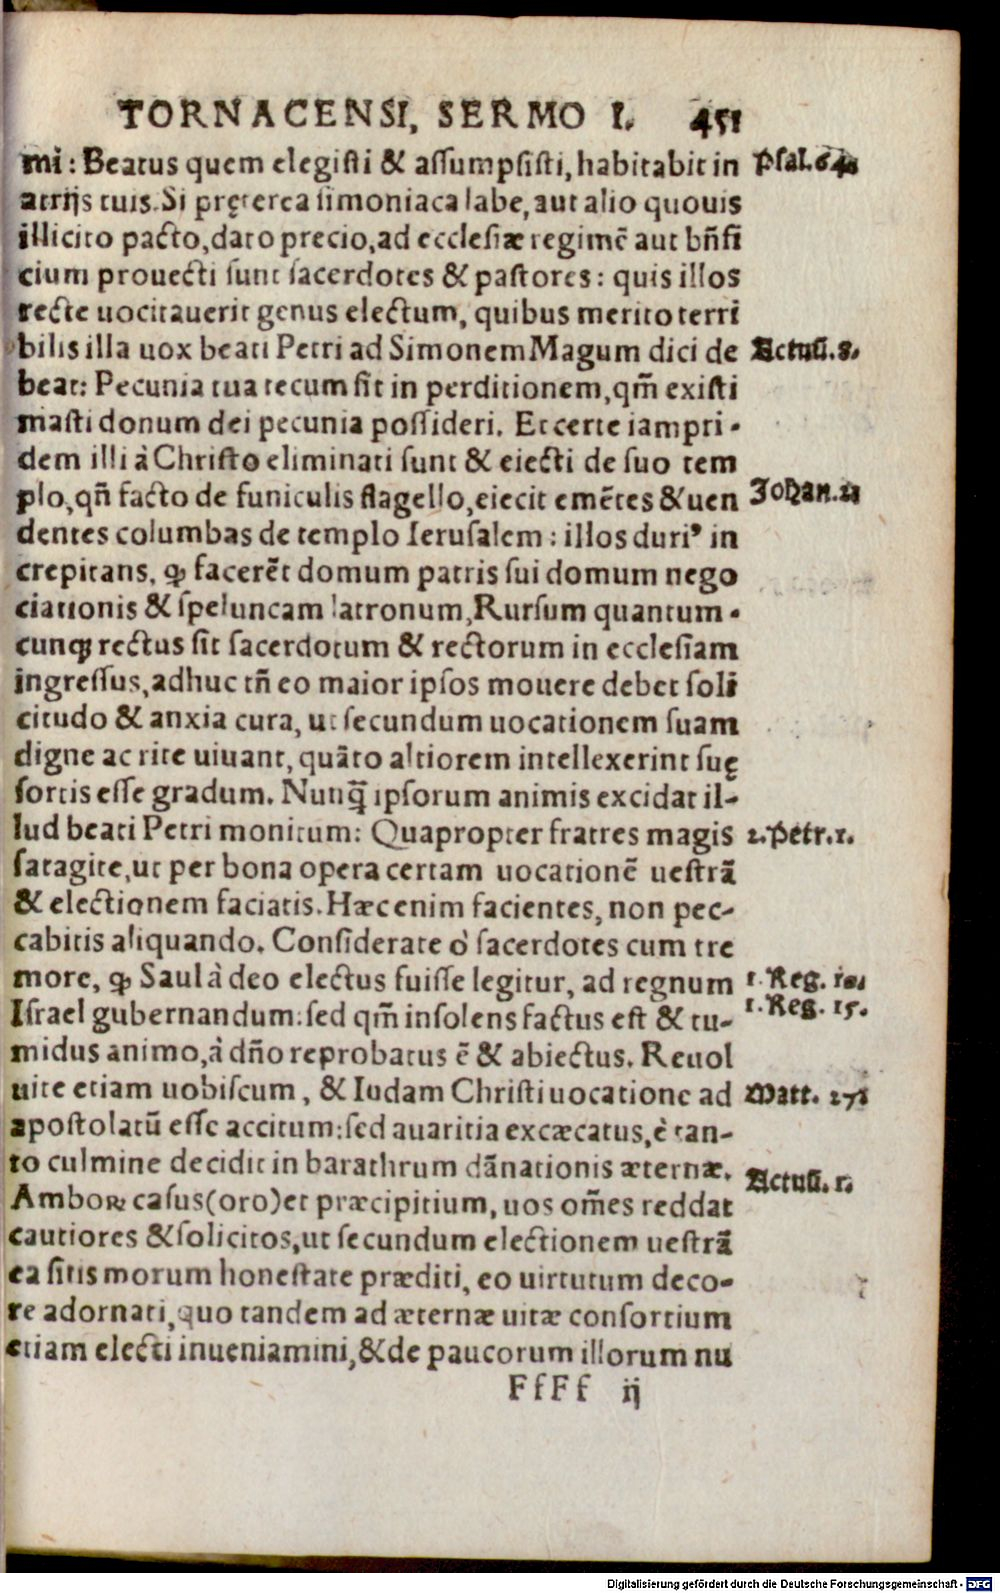 TORNACENSI, SERMO I. 451
mi: Beatus quem elegisti & assumpsisti, habitabit in Psal. 64.
atrijs tuis. Si pręterea simoniaca labe, aut alio quouis
illicito pacto, dato precio, ad ecclesiæ regimẽ aut bñfi
cium prouecti sunt sacerdotes & pastores: quis illos
recte uocitauerit genus electum, quibus merito terri
bilis illa uox beati Petri ad Simonem Magum dici de Actuũ. 8.
beat: Pecunia tua tecum sit in perditionem, qm̃ existi
masti donum dei pecunia possideri. Et certe iampri-
dem illi à Christo eliminati sunt & eiecti de suo tem
plo, qñ facto de funiculis flagello, eiecit emẽtes & uen Johan. 2
dentes columbas de templo Ierusalem: illos duriꝰ in
crepitans, ꝙ facerẽt domum patris sui domum nego
ciationis & speluncam latronum, Rursum quantum-
cunqꝫ rectus sit sacerdotum & rectorum in ecclesiam
ingressus, adhuc tñ eo maior ipsos mouere debet soli
citudo & anxia cura, ut secundum uocationem suam
digne ac rite uiuant, quãto altiorem intellexerint suę
sortis esse gradum. Nunq̃ ipsorum animis excidat il-
lud beati Petri monitum: Quapropter fratres magis 2. Petr. 1.
satagite, ut per bona opera certam uocationẽ uestrã
& electionem faciatis. Hæc enim facientes, non pec-
cabitis aliquando. Considerate ò sacerdotes cum tre
more, ꝙ Saul à deo electus fuisse legitur, ad regnum 1. Reg. 10.
Israel gubernandum: sed qm̃ insolens factus est & tu- 1. Reg. 15.
midus animo, à dño reprobatus ẽ & abiectus. Reuol
uite etiam uobiscum, & Iudam Christi uocatione ad Matt. 27
apostolatũ esse accitum: sed auaritia excæcatus, è tan-
to culmine decidit in barathrum dãnationis æternæ.
Amboꝝ casus (oro) et præcipitium, uos om̃es reddat Actuũ. 1.
cautiores & solicitos, ut secundum electionem uestrã
ea sitis morum honestate præditi, eo uirtutum deco-
re adornati, quo tandem ad æternæ uitæ consortium
etiam electi inueniamini, & de paucorum illorum nu
FfFf ij
Digitalisierung gefördert durch die Deutsche Forschungsgemeinschaft - DFG